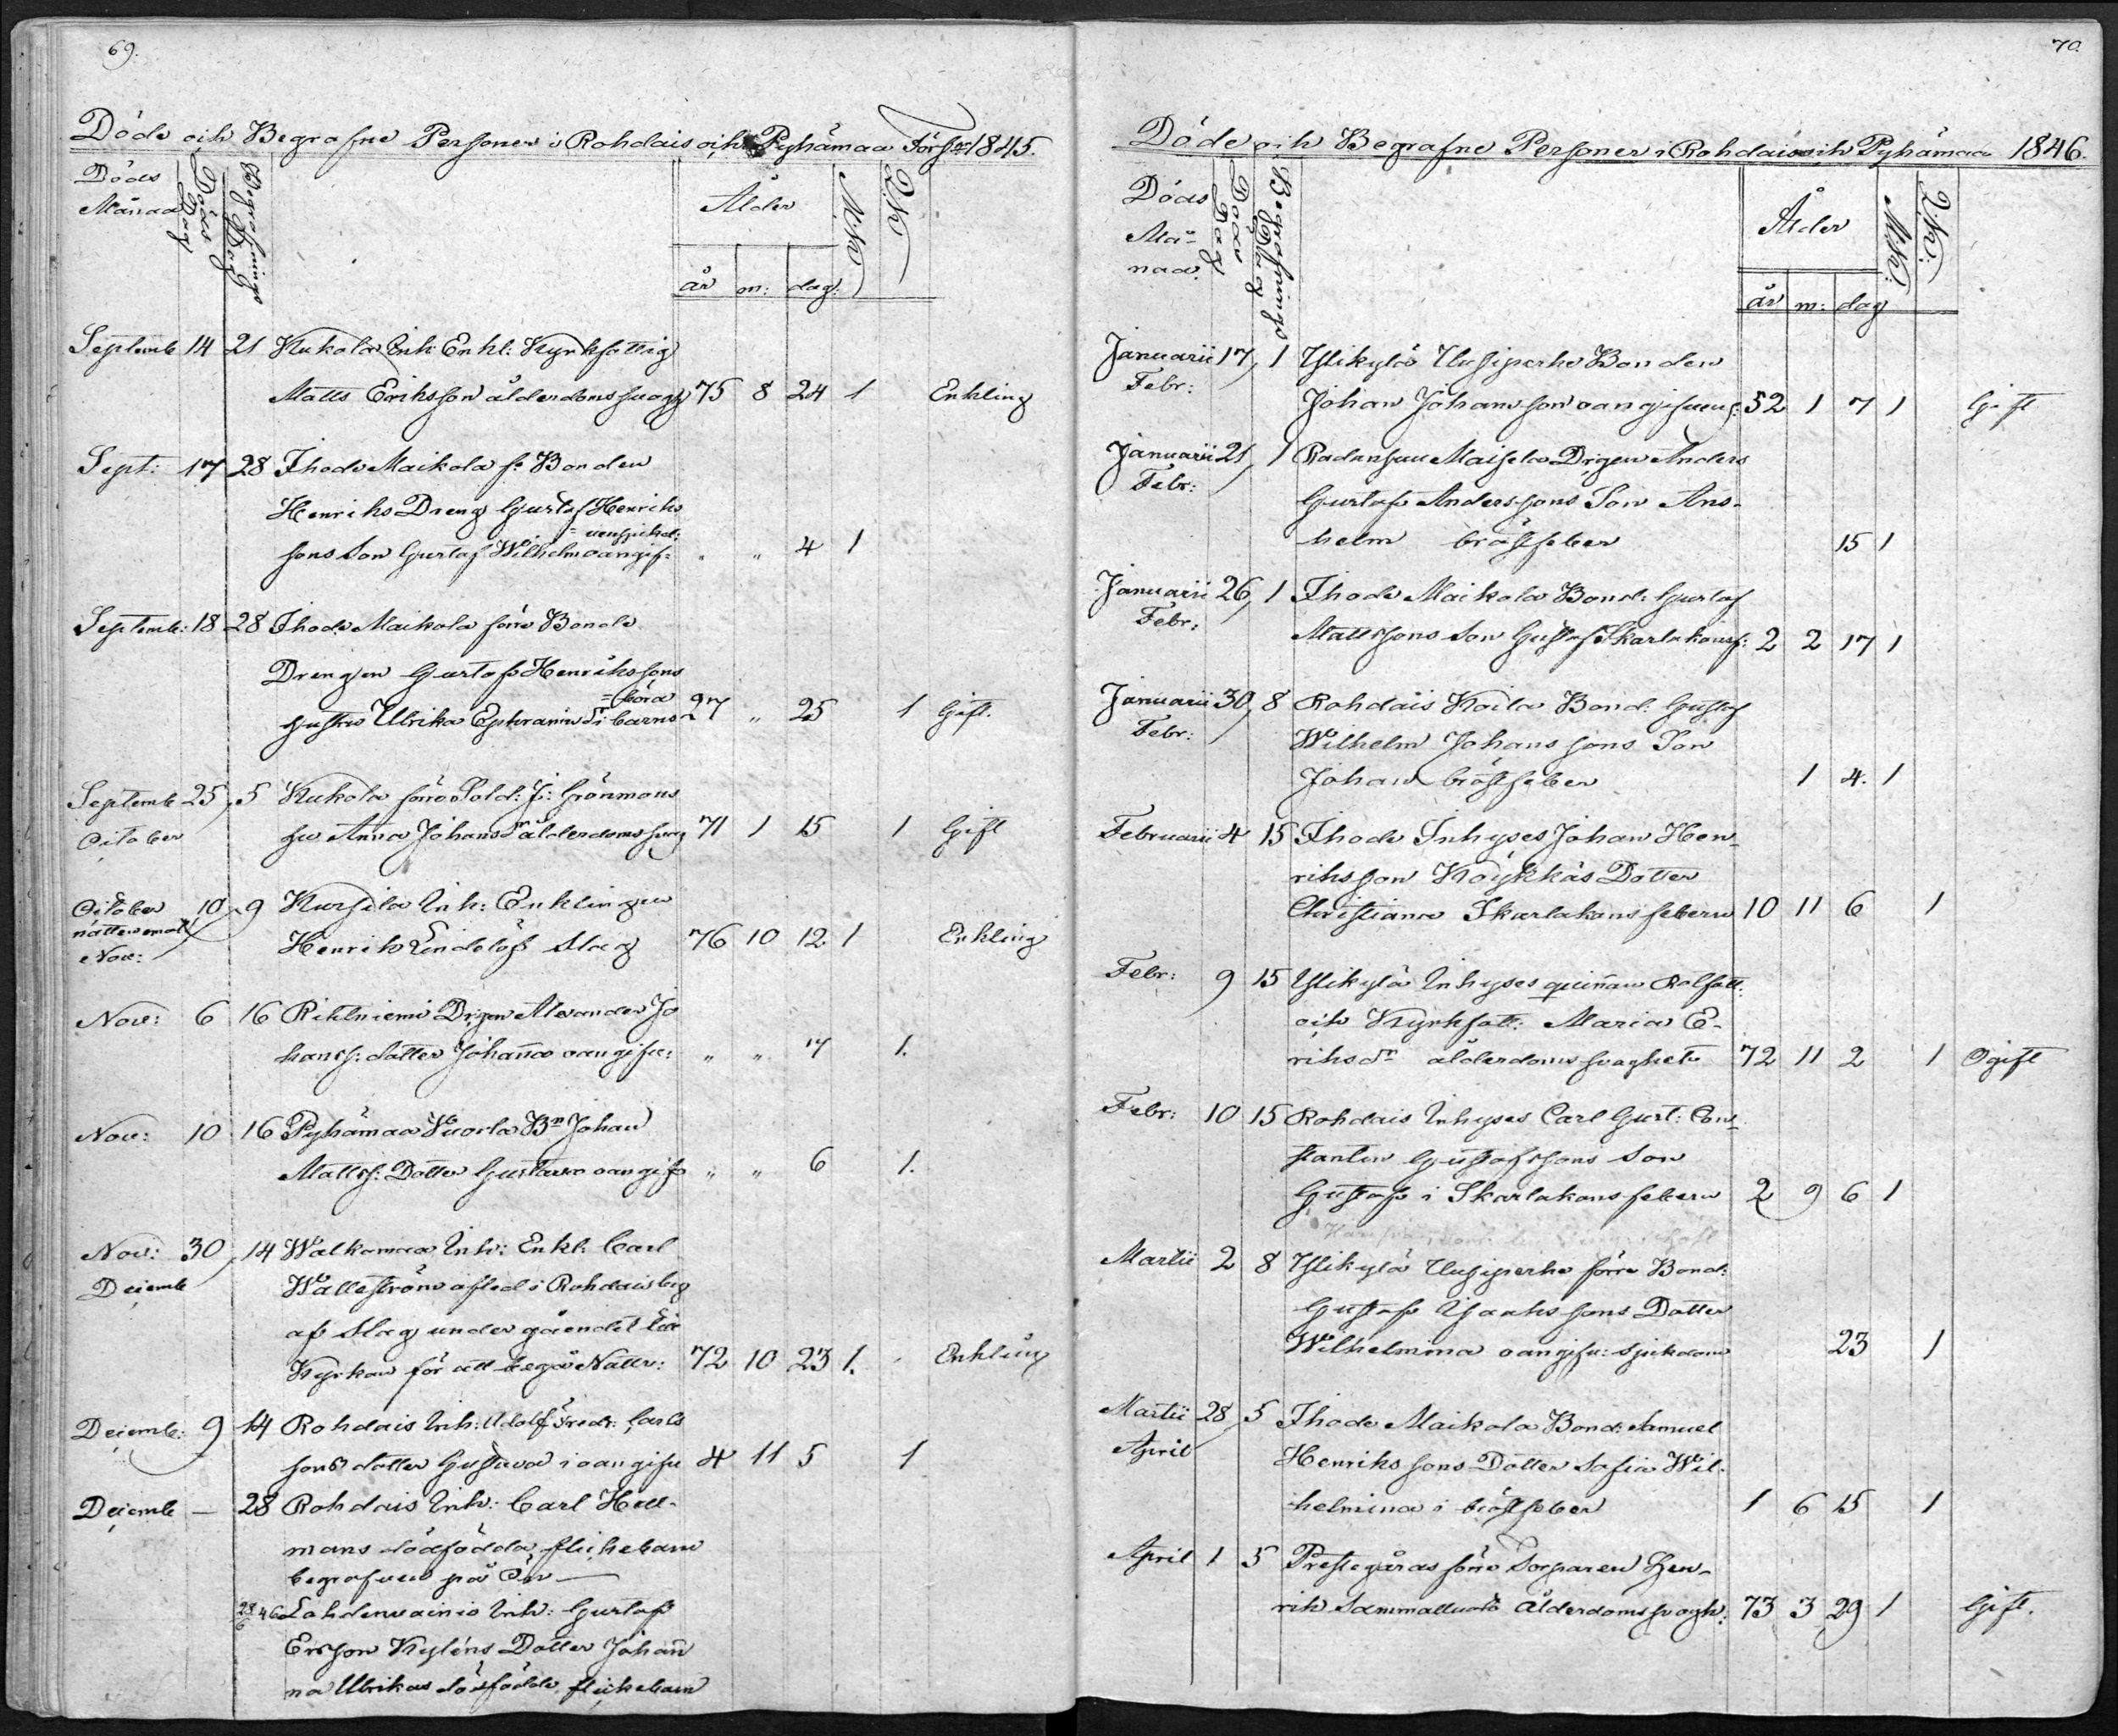 69.
Döde och Begrafne Personer i Rohdais och Pyhämaa Förs: 1845.
Döds Månad
Döds Dag
Begrafnings Dag
Ålder
M:K
Q:K
år m: dag:
Septemb 14 21 Kukola Inh: Enkl: Kyrkfattig
Matts Eriksson ålderdomssvagh 75 8 24 1 Enkling
Sept: 17 28 Ihode Maikola f: Bonden
Henriks Dreng Gustaf Henriks
sons Son Gustaf Wilhelm oangif= " " 4 1
Septemb: 18 28 Ihode Maikola förre Bonde
Drengen Gustaf Henrikssons
=börd
hustru Ulrika Ephraims Dr i barns 27 " 25 1 Gift.
Septemb 25, 5 Kukola förre Sold: J: Grönmans
October hu Anna Johans Dr ålderdomssvag 71 1 15 1 Gift
October 10 9 Kursila Inh: Enklingen
Nov: Henrik Lindelöf Slag 76 10 12 1 Enkling
Nov: 6 16 Rihtniemi Drgen Alexander Jo
hanss: dotter Johanna oangifv: " " 7 1.
Nov: 10 16 Pyhämaa Wuorla Bn Johan
Mattss: Dotter Gustava oangif " " 6 1.
Nov: 30, 14 Walkamaa Inh: Enkl: Carl
Decemb Wallström afled i Rohdais by
af Slag under gåendet till
Kyrkan för att begå Nattv: 72 10 23 1. Enkling
Decemb: 9 14 Rohdais Inh: Adolf Fredr: Carls
sons dotter Gustava i oangifv 4 11 5 1
Decemb — 28 Rohdais Inh: Carl Hell-
mans dödfödda flickebarn
begrafven på Ön —
28/6 46 Lahdenvainio Inh: Gustaf
Ersson Kyléns Dotter Johan
na Ulrikas dödfödda flickebarn
70.
Döde och Begrafne Personer i Rohdais och Pyhämaa 1846.
Döds Må-
nad.
Döds Dag
Begrafnings Dag
Ålder
M:K:
Q:K:
år m: dag
Januarii 17, 1 Ylikylä Uusiperhe Bonden
Febr: Johan Johansson oangifven s: 52 1 7 1 Gift
Januarii 21, 1 Radansuu Maisela Drgen Anders
Febr: Gustaf Anderssons Son Ans-
helm bröstfeber 15 1
Januarii 26, 1 Ihode Maikola Bond: Gustaf
Febr: Mattssons Son Gustaf Skarlakansf: 2 2 17 1
Januarii 30, 8 Rohdais Koila Bond: Gustaf
Febr: Wilhelm Johanssons Son
Johan bröstfeber 1 4. 1
Februarii 4 15 Ihode Inhyses Johan Hen-
riksson Köykkäs Dotter
Christiana Skarlakans febern 10 11 6 1
Febr: 9 15 Ylikylä Inhyses quinnan Rolfatt:
och Kyrkfatt: Maria E-
riksdr ålderdomssvaghet 72 11 2 1 Ogift
Febr: 10 15 Rohdais Inhyses Carl Gust: Con-
stantin Gustafssons Son
Gustaf i Skarlakansfebern 2 9 6 1
Martii 2 8 Ylikylä Uusiperhe förre Bond:
Gustaf Isaakssons Dotter
Wilhelmina oangifv: sjukdom 23 1
Martii 28, 5 Ihode Maikola Bond: Samuel
April Henrikssons Dotter Sofia Wil-
helmina i bröstfeber 1 6 15 1
April 1 5 Prestegårds förre Torparen Hen-
rik Sammallund Ålderdomssvagh: 73 3 29 1 Gift.